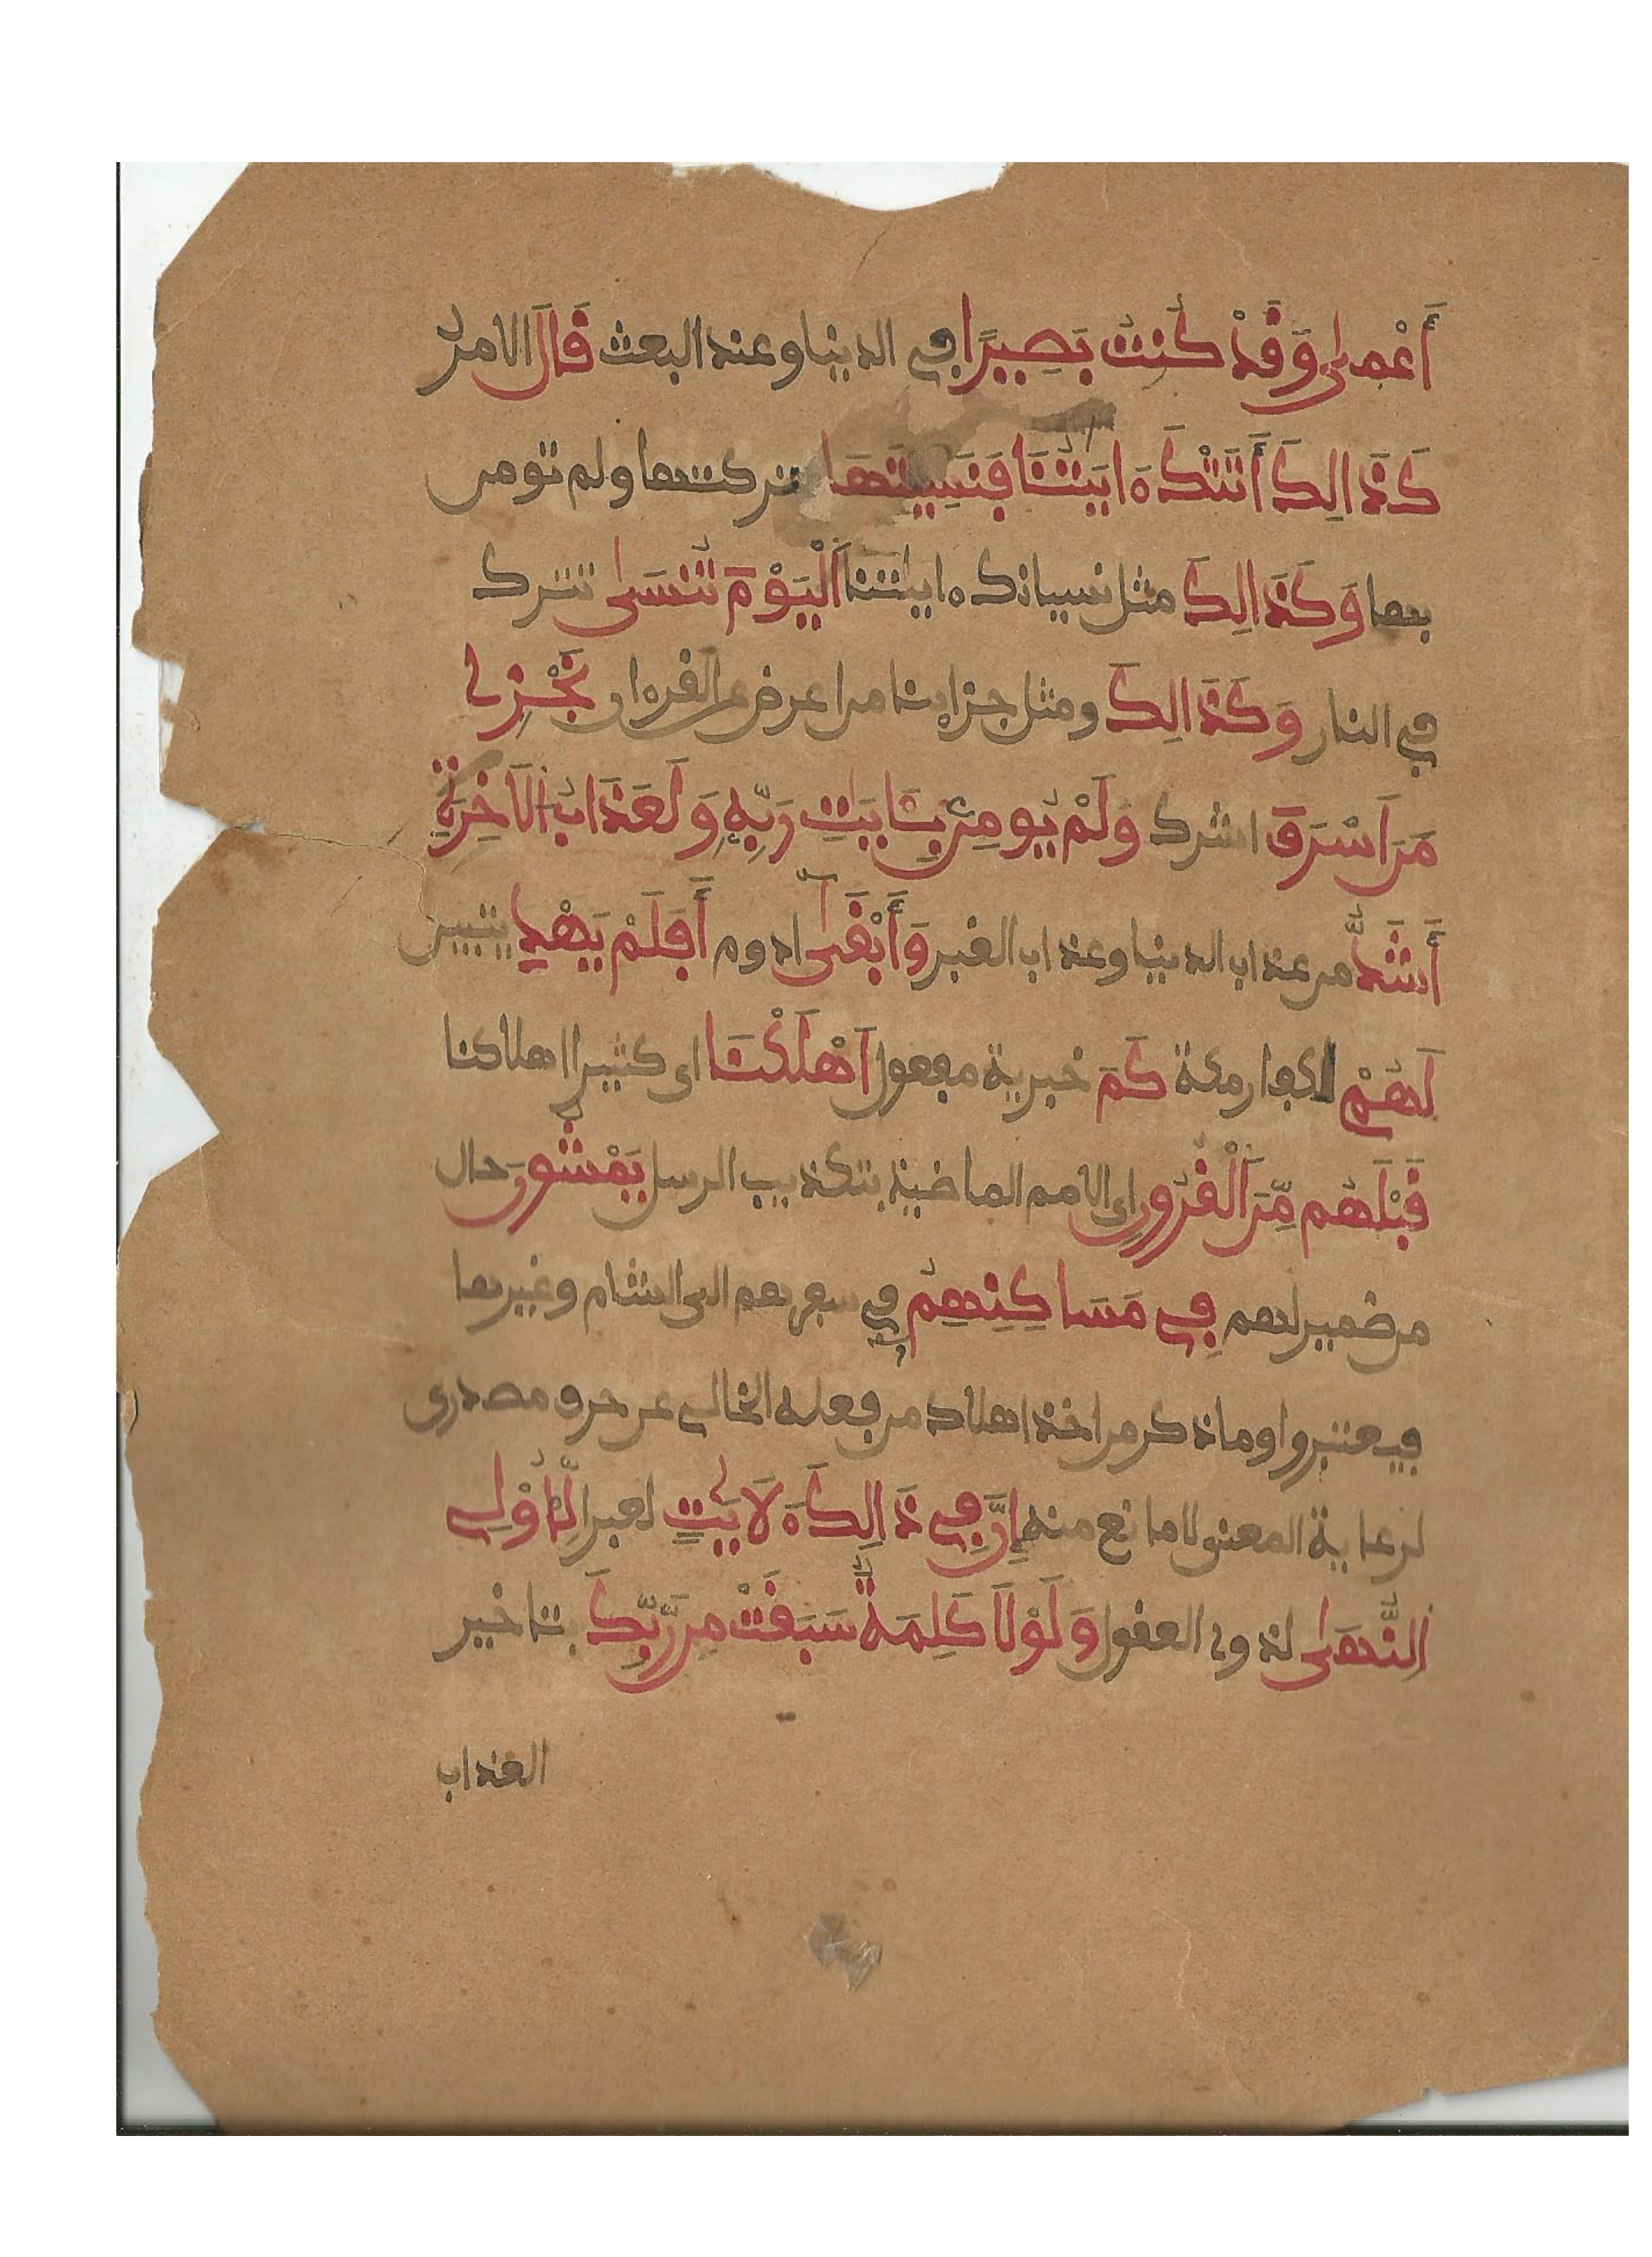 أَعْمىٰ وَقَدْ كُنتُ بَصِيرًا في الدنيا وعند البعث قَالَ الامر
كَذَالِكَ أَتَتْكَ ءَايَٰتُنَا فَنَسِيتَهَا تركتها ولم تومن
بها وَكَذَالِكَ مثل نسيانك ءاياتنا اَلْيَوْمَ تُنسَىٰ تترك
في النار وَكَذَالِكَ ومثل جزاينا من اعرض عن القرءان نَجْزِي
مَنَ اَسْرَفَ اشرك وَلَمْ يُومِنۢ بِـَٔايَٰتِ رَبِّهِۦ وَلَعَذَابُ الَاخِرَةِ
أَشَدُّ من عذاب الدنيا وعذاب القبر وَأَبْقَىٰٓ ادوم أَفَلَمْ يَهْدِ يتبين
لَهُمْ لكفار مكة كَمَ خبرية مفعول اَهْلَكْنَا اي كثيرا اهلاكنا
قَبْلَهُم مِّنَ اَلْقُرُونِ اي الامم الماضية بتكذيب الرسل يَمْشُونَ حال
من ضمير لهم فِي مَسَاكِنِهِمُ في سفرهم الى الشام وغيرها
فيعتبروا وما ذكر من اخذ اهلاك من فعله الخالي عن حرف مصدري
لرعاية المعنى لا مانع منه إِنَّ فِي ذَالِكَ ءَلَايَٰتٍ لعبرا لِّأُوْلِي
اِلنُّهَىٰ لذوي العقول وَلَوْلَا كَلِمَةٌ سَبَقَتْ مِن رَّبِّكَ بتاخير
العذاب